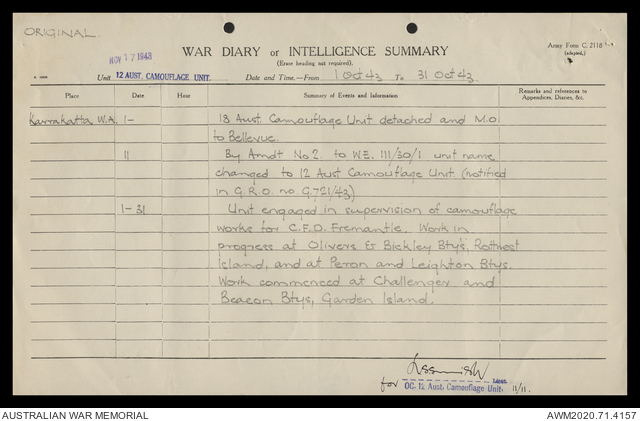 ORIGINAL.
NOV 17 1943
WAR DIARY or INTELLIGENCE SUMMARY
(Erase heading not required).
Army Form C. 2118
(adapted.)
Unit 12 AUST. CAMOUFLAGE UNIT. Date and Time.—From 1 Oct 43 To 31 Oct 43
Place Date Hour Summary of Events and Information Remarks and references to
Appendices, Diaries, &c.
Karrakatta W.A. 1- 13 Aust. Camouflage Unit detached and M.O.
to Bellevue.
11 By Amdt No 2. to W.E. 111/30/1 unit name
changed to 12 Aust Camouflage Unit. (notified
in G.R.O. no G.721/43)
1-31 Unit engaged in supervision of camouflage
works for C.F.D. Fremantle. Work in
progress at Olivers & Bickley Bty's, Rottnest
Island, and at Peron and Leighton Btys.
Work commenced at Challenger and
Beacon Btys, Garden Island.
Lieut.
for OC. 12 Aust. Camouflage Unit. 11/11.
AUSTRALIAN WAR MEMORIAL
AWM2020.71.4157